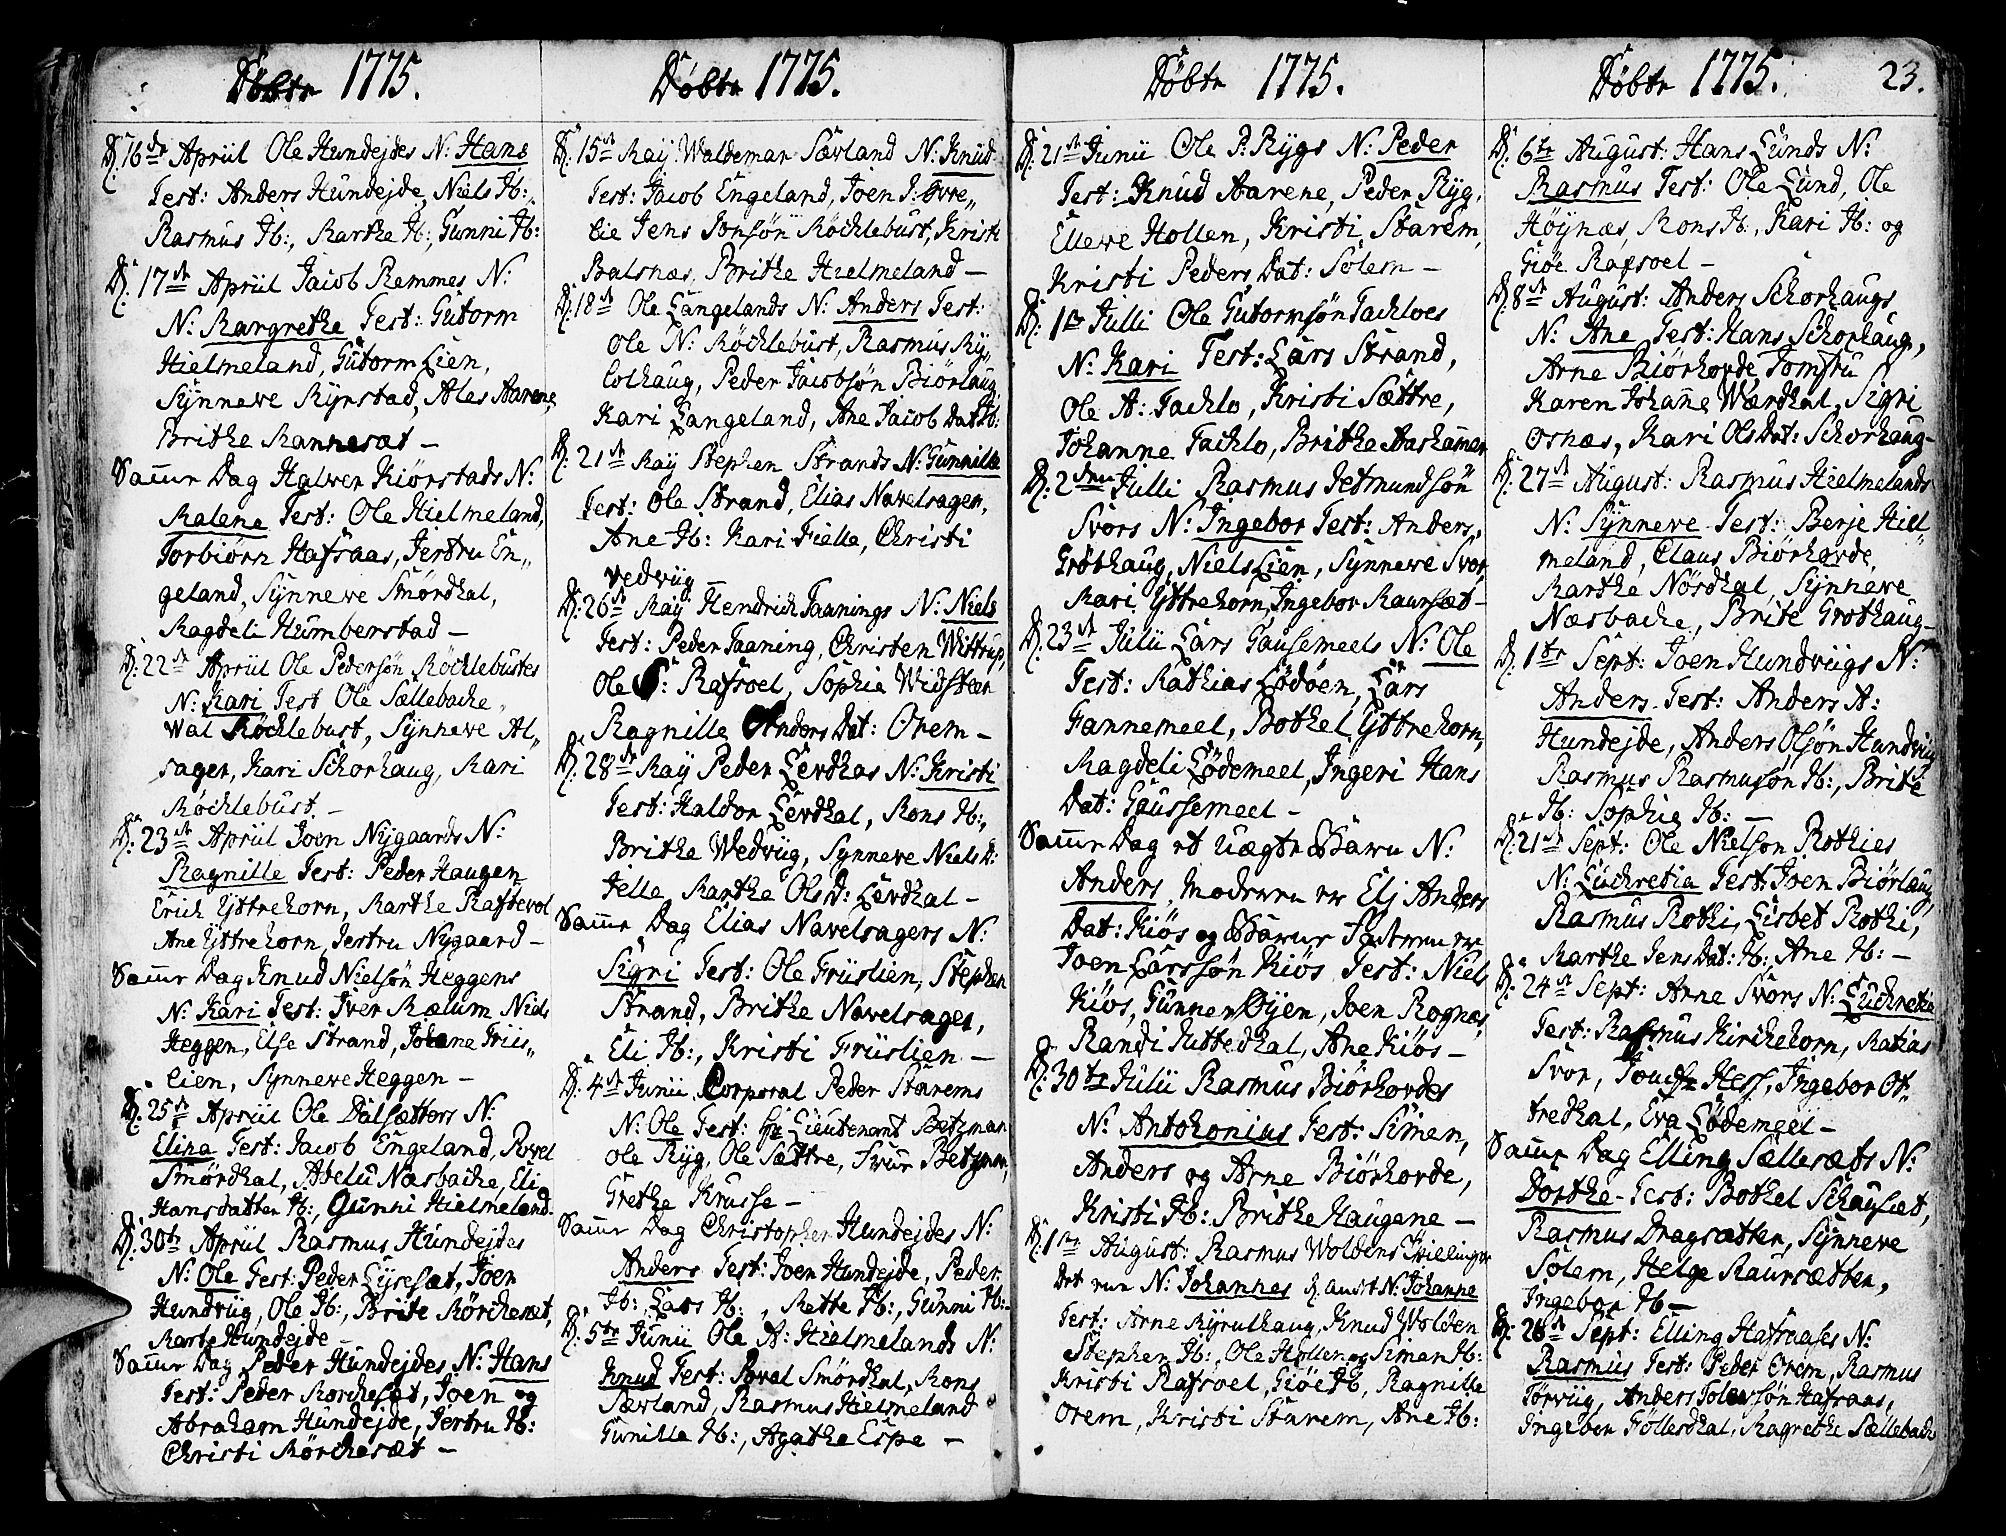 Döbte 1775.
D: 16de Apriil Ole Hundejdes N: Hans
Test: Anders Hundejde, Niels Ib:,
Rasmus Ib:, Marthe Ib:, Gunni Ib:
D: 17de Apriil Jacob Remmes N:
N: Margrethe Test: Gutorm
Hielmeland, Gutorm Lien,
Synneve Rynstad, Ales Aarene,
Brithe Mannesæt –
Same Dag Halver Kiörstads N:
Malene Test: Ole Hielmeland,
Torbiörn Hafsaas, Jertru En„
geland, Synneve Smördhal,
Magdeli Humberstad –
D: 22de Apriil Ole Pedersön Röchlebustes
N: Kari Test Ole Sællebache,
Wal Röchlebust, Synneve Al„
sager, Kari Schorhaug, Kari
Röchlebust. –
D: 23de Apriil Joen Nygaards N:
Ragnille Test: Peder Haugen
Erich Yttrehorn, Marthe Raftevol
Ane Yttrehorn, Jertru Nygaard –
Same Dag Knud Nielsön Heggens
N: Kari Test: Iver Mælum Niels
Heggen, Else Strand, Johane Friis„
lien, Synneve Heggen –
D: 25de Apriil Ole Dalsætters N:
Elina Test: Jacob Engeland, Povel
Smördhal, Abelu Næsbache, Eli
Hansdatter Ib:, Gunni Hielmeland.
D: 30te Apriil Rasmus Hundejdes
N: Ole Test: Peder Lysesæt, Joen
Hundviig, Ole Ib:, Brite Mörchesæt,
Marte Hundejde –
Same Dag Peder Hundejdes N: Hans
Test: Peder Morchesæt, Joen og
Abraham Hundejde, Jertru Ib:
Christi Mörchesæt –
Döbte 1775.
D: 15de May Waldemar Særland N: Knud
Test: Jacob Engeland, Joen I: Övre„
lie Jens Jonsön Röchlebust, Kristi
Balsnæs, Brithe Hielmeland –
D: 18de Ole Langelands N: Anders Test:
Ole N: Röchlebust, Rasmus My„
colhaug, Peder Jacobsön Biörlaug
Kari Langeland, Ane Jacob Dat Ib:
D: 21de May Stephen Strands N: Gunnille
Test: Ole Strand, Elias Navelsager,
Ane Ib: Kari Fielle, Christi
Vedviig –
D: 26de May Hendrich Taanings N: Niels
Test: Peder Taaning, Christen Wittrup,
Ole S: Rafsvoel, Sophia Widsteen
Ragnille Anders Dat: Orem –
D: 28de May Peder Levdhas N: Kristi
Test: Haldor Levdhal, Mons Ib:,
Brithe Wedviig, Synneve Niels D:
Jelle Marthe Ols D: Levdhal –
Same Dag Elias Navelsagers N:
Sigri Test: Ole Friislien, Stephen
Strand, Brithe Navelsager,
Eli Ib:, Kristi Friislien –
D: 4de Junii Corporal Peder Starems
N: Ole Test: Hr Lieutenant Betzman
Ole Ryg, Ole Sættre, Frue Betzman,
Grethe Krusse –
Same Dag Christopher Hundejdes N:
Anders Test: Joen Hundejde, Peder
Ib:, Lars Ib:, Mette Ib:, Gunni Ib:
D: 5te Junii Ole A: Hielmelands N:
Knud Test: Povel Smördhal, Mons
Særland, Rasmus Hielmeland
Gunille Ib:, Agathe Espe –
Döbte 1775.
D: 21de Junii Ole P: Rygs N: Peder
Test: Knud Aarene, Peder Ryg,
Elleve Hollen, Kristi Starem,
Kristi Peders Dat: Solem –
D: 1te Julii Ole Gutormsön Tachloes
N: Kari Test: Lars Strand,
Ole A: Tachlo, Kristi Sættre,
Johanne Tachlo, Brithe Aashamer
D: 2den Julii Rasmus Jetmundsön
Svors N: Ingebor Test: Anders
Gröthaug, Niels Lien, Synneve Svor,
Mari Yttrehorn, Ingebor Maursæt –
D: 23de Julii Lars Gausemeels N: Ole
Test: Mathias Lödöen, Lars
Fannemeel, Bothel Yttrehorn,
Magdeli Lödemeel, Ingeri Hans
Dat: Gaussemeel –
Same Dag et Uægte Barn N:
Anders, Moderen er Eli Anders
Dat: Kiös og Barne Faderen er
Joen Larssön Kiös, Test: Niels
Kiös, Gunner Öyen, Joen Rognæs,
Randi Muttedhal, Ane Kiös –
D: 30te Julii Rasmus Biörhovdes
N: Anthonius Test: Simen,
Anders og Arne Biörhovde,
Kristi Ib: Brithe Haugene –
D: 1te August: Rasmus Woldens Tvillinger
Det eene N: Johannes d. andet N: Johanne
Test: Arne Myrulhaug, Knud Wolden
Stephen Ib:, Ole Hollen og Siman Ib:
Kristi Rafsvoel, Giöe Ib, Ragnille
Orem, Kristi Starem, Ane Ib:
Döbte 1775. 23.
D: 6te August: Hans Lunds N:
Rasmus Test: Ole Lund, Ole
Höynæs, Mons Ib:, Kari Ib: og
Giöe Rafsvoel –
D: 8de August: Anders Schorhaugs
N: Ane Test: Hans Schorhaug,
Arne Biörhovde Jomfru
Karen Johane Wærdhal, Sigri
Osnæs, Kari Ols Dat: Schorhaug –
D: 27de August: Rasmus Hielmelands
N: Synneve Test: Berje Hiel„
meland, Claus Biörhovde,
Marthe Nördhal, Synneve
Næsbache, Brite Grothaug –
D: 1te Sept: Joen Hundviigs N:
Anders Test: Anders A:
Hundejde, Anders Olsön Hundviig
Rasmus Rasmusön Ib:, Brite
Ib: Sophie Ib: –
D: 21de Sept: Ole Nielson Rothies
N: Luchretia Test: Joen Biörlaug,
Rasmus Rothi, Lisbet Rothi,
Marthe Jens Dat: Ib: Ane Ib: –
D: 24de Sept: Arne Svors N: Luchretia
Test: Rasmus Kirchehorn, Matias
Svor, Hess, Ingebor Ot„
tredhal, Eva Lödemeel –
Same Dag Elling Sællesæts N:
Dorthe Test: Bothel Schausæt,
Rasmus Dragsætter, Synneve
Solem, Helge Maursætter,
Ingebor Ib –
D: 28de Sept: Elling Hafsaases N:
Rasmus Test: Peder Orem, Rasmus
Torviig, Anders Tolevsön Hafsaas,
Ingebor Föllesdhal, Magrethe Sællebach